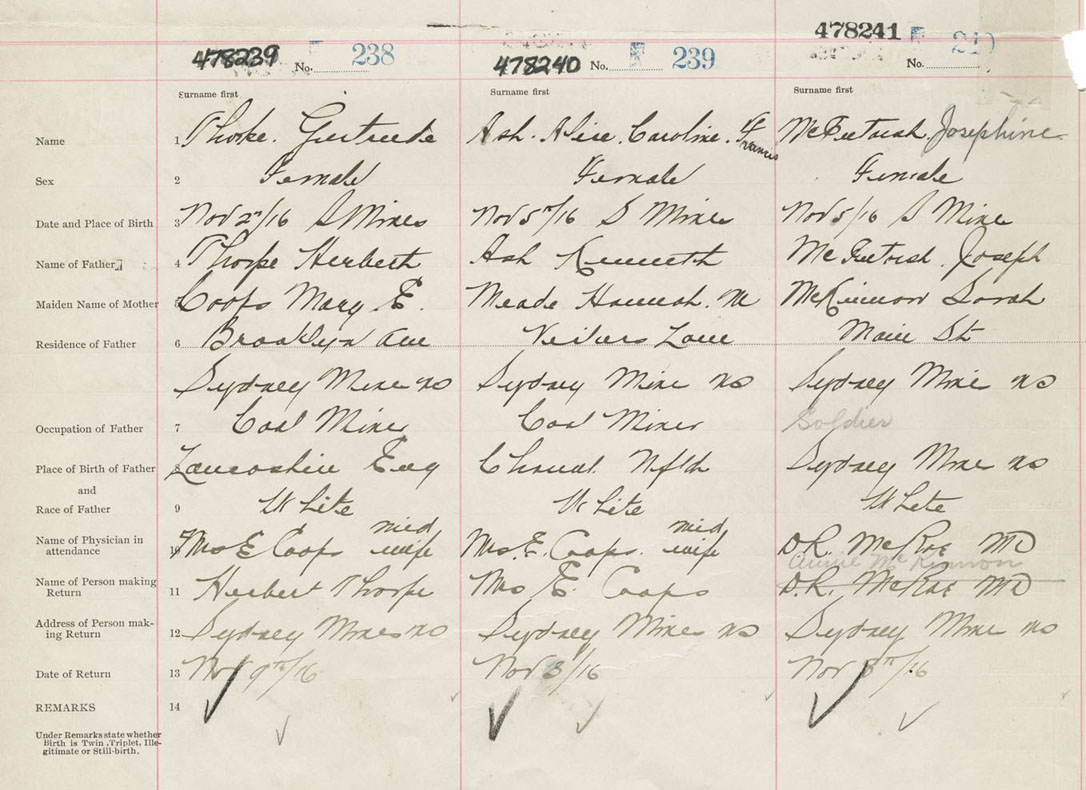 478239 No. 238 478240 No. 239 478241 No.
Surname first Surname first Surname first
Name 1 Thorpe. Gertrude Ash. Alice. Caroline. Francis Josephine
Sex 2 Female Female Female
Date and Place of Birth 3 Nov 2nd/16 S Mines Nov 5th/16 S Mine Nov 5/16 S Mine
Name of Father 4 Thorpe Herbert Ash Kenneth Joseph
Maiden Name of Mother 5 Coops Mary E. Meade Hannah. M McKinnon Sarah
Residence of Father 6 Brooklyn Ave Main St
Sydney Mines NS Sydney Mine NS Sydney Mine NS
Occupation of Father 7 Coal Miner Coal Miner Soldier
Place of Birth of Father 8 Lancashire Eng Nfld Sydney Mine NS
and
Race of Father 9 White White White
Name of Physician in attendance 10 Mrs E Coops mid wife Mrs. E. Coops. mid wife D.R. McRae MD
Annie McKinnon
Name of Person making Return 11 Herbert Thorpe Mrs E. Coops D.R. McRae MD
Address of Person mak-ing Return 12 Sydney Mines NS Sydney Mines NS Sydney Mine NS
Date of Return 13 Nov 9th/16 Nov 3/16 Nov 8th/16
REMARKS 14
Under Remarks state whether
Birth is Twin, Triplet, Ille-
gitimate or Still-birth.